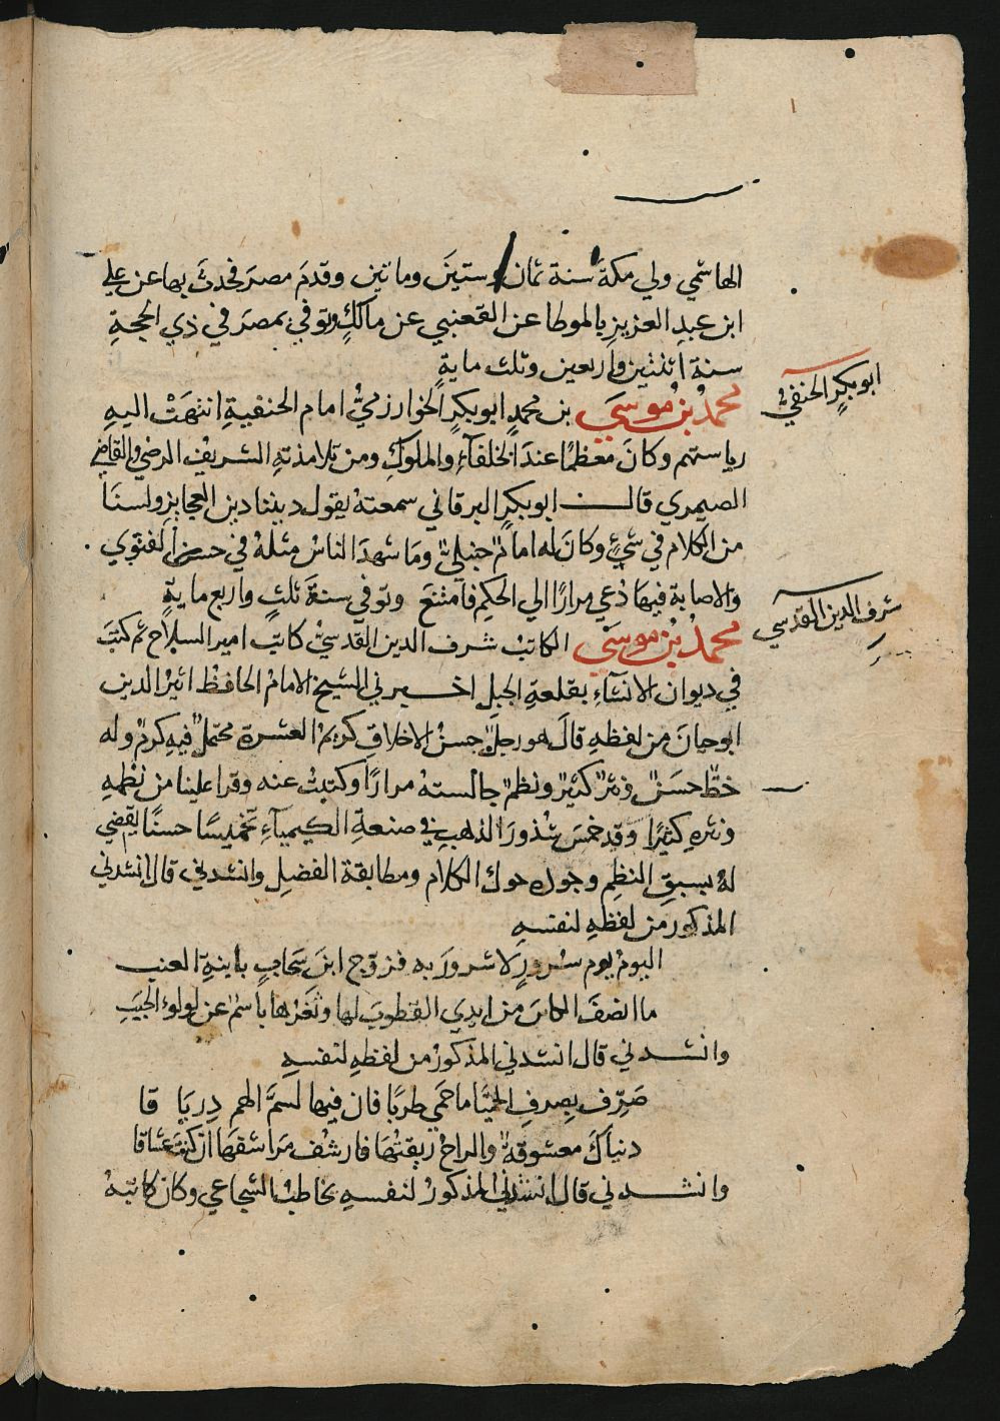 الهاشمي ولي مكة سنة ثمان وستين وماتين وقدمَ مصرَ فحدثَ بها عن علي
ابن عبدِ العزيزِ بالموطا عن القعنبي عن مالكٍ وتوفي بمصرَ في ذي الحجةِ
سنة اثنتين واربعين وثلث مايةٍ
ابو بكرٍ الحنفي
محمدُ بنُ موسيَ بن محمدٍ ابو بكرٍ الخوارزميُّ امام الحنفيةِ انتهَتْ اليهِ
رياستهم وكانَ معظمًا عندَ الخلفآءِ والملوكِ ومن تلامذتهِ الشريفُ الرضي والقاضي
الصيمري قال ابو بكرٍ البرقاني سمعتهُ يقول ديننا دين العجايز ولسنَا
من الكلام في شيءٍ وكانَ له امامٌ حنبليٌّ ومَا شهدَ الناسُ مثلهُ في حسنِ الفتوي
والاصابة فيهَا دُعي مرارًا الي الحكمِ فامتنعَ وتوفي سنةَ ثلثٍ واربع مايةٍ
شرف الدين القدسي
محمدُ بنُ موسَي الكاتبُ شرف الدين القدسيُّ كاتبُ امير السلاح ثم كتبَ
في ديوان الانشآءِ بقلعةِ الجبلِ اخبرني الشيخ الامامُ الحافظُ اثيرُ الدين
ابو حيانَ من لفظهِ قالَ هو رجلٌ حسنُ الاخلاقِ كريمُ العشرة محتملٌ فيهِ كرمٌ وله
خطٌّ حسَنٌ ونثرٌ كثيرٌ ونظمٌ جالستهُ مرارًا وكتبتُ عنه وقرا علينا من نظمهِ
ونثرهِ كثيرًا وقد خمسَ شذورَ الذهبِ في صنعةِ الكيمياءِ تخميسًا حسنًا يقضي
لهُ بسبقِ النظمِ وجوده حوك الكلام ومطابقة الفضلِ وانشدني قال انشدني
المذكور من لفظهِ لنفسهِ
اليومُ يوم سُرورٍ لا شرورَ به فزوّج ابنَ سَحابٍ بابنةِ العنب
ما انصفَ الكاسَ من ابدي القطوبَ لها وثغرُها باسمٌ عن لولوءِ الحَبَبِ
وانشدني قال انشدني المذكورُ من لفظهِ لنفسهِ
صَرّف بِصرفِ الحمُيَّا ما حَمي طربًا فان فيها لسمّ الهم دِريَا قا
دنياكَ معشوقةٌ والراحُ ريقتُهَا فارشُف مَراشفَهَا ان كنتَ عشاقا
وانشدني قال انشدني المذكورُ لنفسهِ يخاطبُ الشجاعي وكان كاتبهُ